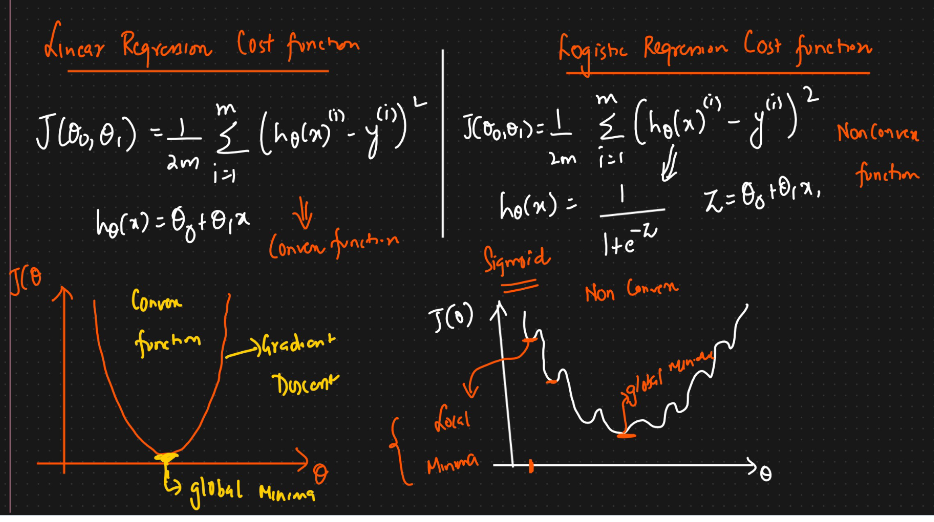 Linear Regression Cost function
J(θ₀,θ₁) = 1/2m Σ i=1 m (hθ(x)⁽ⁱ⁾ - y⁽ⁱ⁾)²
hθ(x) = θ₀ + θ₁x
Convex function
J(θ
Convex
function
Gradient
Descent
θ
global Minima
Logistic Regression Cost function
J(θ₀,θ₁) = 1/2m Σ i=1 m (hθ(x)⁽ⁱ⁾ - y⁽ⁱ⁾)²
Non Convex
function
hθ(x) = 1/1+e⁻ᶻ Z = θ₀ + θ₁x₁
Sigmoid
Non Convex
J(θ)
global Minima
Local
Minima
θ